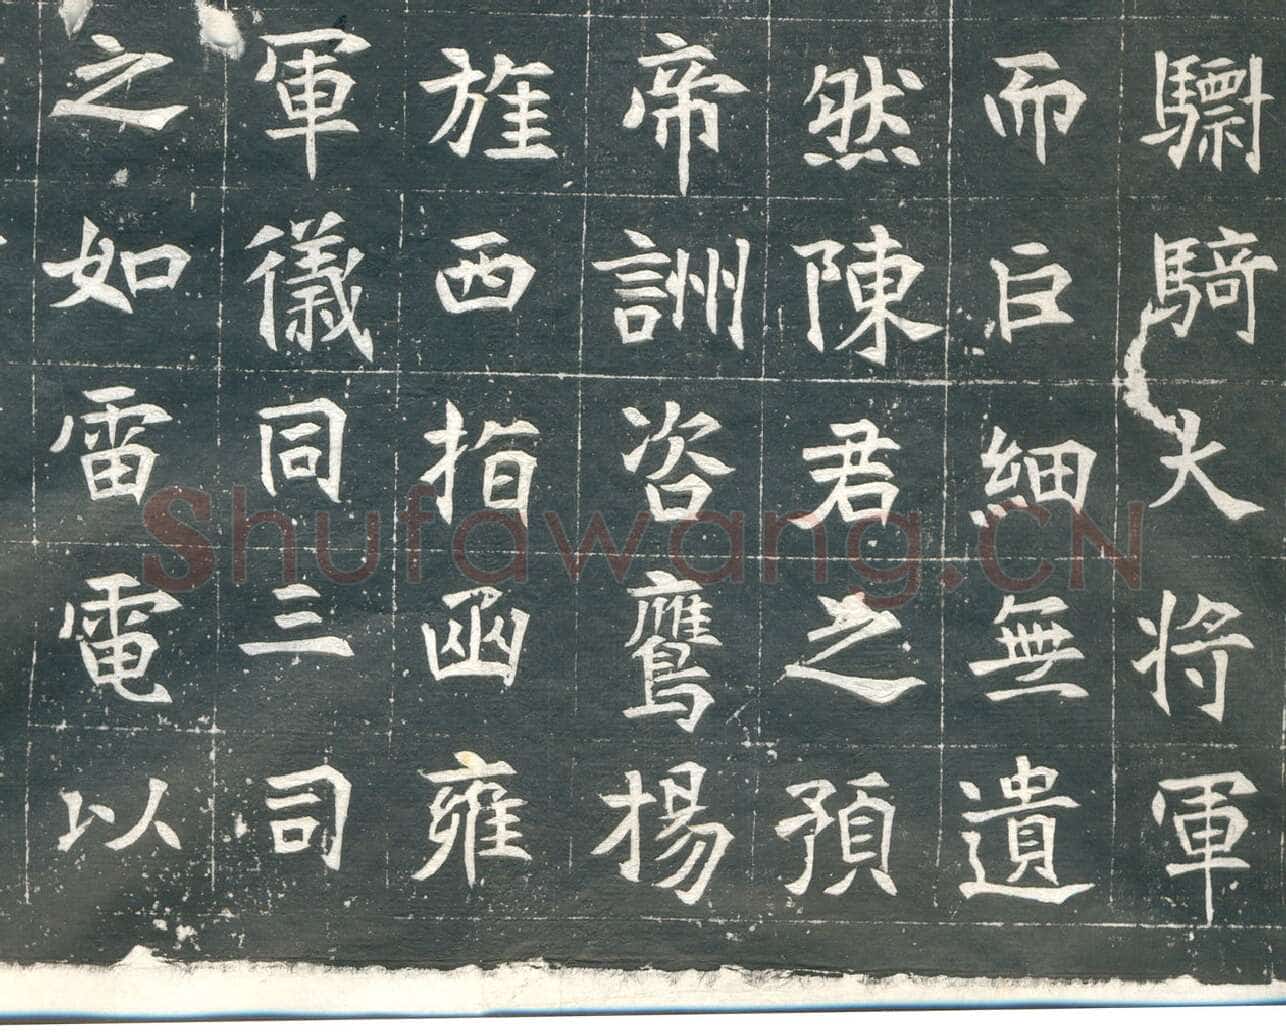 驃騎大将軍
而巨細無遺
然陳君之預
帝詶咨鷹揚
旌西指函雍
軍儀同三司
之如雷電以
Shufawang.CN